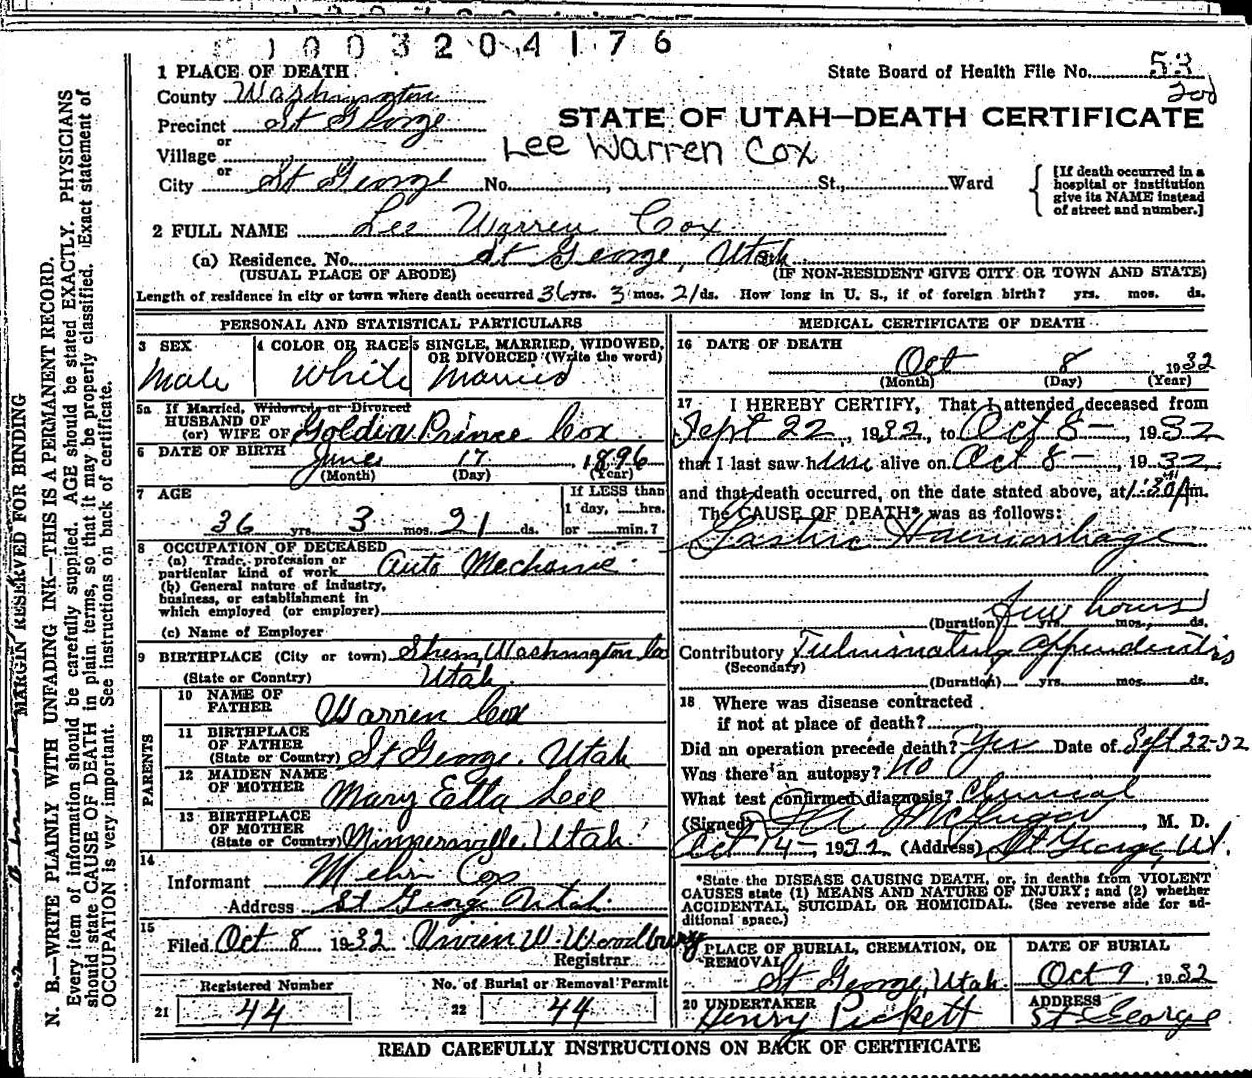 1003204176
1 PLACE OF DEATH
State Board of Health File No. 53
County Washington
Precinct St George
STATE OF UTAH—DEATH CERTIFICATE
or
Village
Lee Warren Cox
or
City St George No. , St., Ward
[If death occurred in a hospital or institution give its NAME instead of street and number.]
2 FULL NAME Lee Warren Cox
(a) Residence. No. St George, Utah
(USUAL PLACE OF ABODE) (IF NON-RESIDENT GIVE CITY OR TOWN AND STATE)
Length of residence in city or town where death occurred 36 yrs. 3 mos. 21 ds. How long in U. S., if of foreign birth? yrs. mos. ds.
PERSONAL AND STATISTICAL PARTICULARS
3 SEX Male
4 COLOR OR RACE White
5 SINGLE, MARRIED, WIDOWED, OR DIVORCED (Write the word) Married
5a If Married, Widowed, or Divorced
HUSBAND OF
(or) WIFE OF Goldia Prince Cox
6 DATE OF BIRTH June 17, 1896
(Month) (Day) (Year)
7 AGE
36 yrs. 3 mos. 21 ds.
If LESS than 1 day, hrs. or min.?
8 OCCUPATION OF DECEASED
(a) Trade, profession or particular kind of work Auto Mechanic
(b) General nature of industry, business, or establishment in which employed (or employer)
(c) Name of Employer
9 BIRTHPLACE (City or town) Shem, Washington Co
(State or Country) Utah.
PARENTS
10 NAME OF FATHER Warren Cox
11 BIRTHPLACE OF FATHER (State or Country) St George, Utah
12 MAIDEN NAME OF MOTHER Mary Etta Lee
13 BIRTHPLACE OF MOTHER (State or Country) Minnersville, Utah.
14
Informant Cox
Address St George Utah.
15
Filed Oct 8 1932 Vivien W. Woodbury
Registrar
Registered Number
21 44
No. of Burial or Removal Permit
22 44
MEDICAL CERTIFICATE OF DEATH
16 DATE OF DEATH
Oct 8 1932
(Month) (Day) (Year)
17 I HEREBY CERTIFY, That I attended deceased from
Sept 22, 1932, to Oct 8—, 1932
that I last saw him alive on Oct 8—, 1932
and that death occurred, on the date stated above, at 1:30 A m.
The CAUSE OF DEATH* was as follows:
Gastric Haemorrhage
few hours
(Duration) yrs. mos. ds.
Contributory Fulminating appendicitis
(Secondary)
(Duration) yrs. mos. ds.
18 Where was disease contracted
if not at place of death?
Did an operation precede death? Yes Date of Sept 22-32
Was there an autopsy? No
What test confirmed diagnosis? Clinical
(Signed) McGregor, M. D.
Oct 14—1932 (Address) St George, Ut.
*State the DISEASE CAUSING DEATH, or, in deaths from VIOLENT
CAUSES state (1) MEANS AND NATURE OF INJURY; and (2) whether
ACCIDENTAL, SUICIDAL OR HOMICIDAL. (See reverse side for ad-
ditional space.)
19 PLACE OF BURIAL, CREMATION, OR REMOVAL
St George, Utah
DATE OF BURIAL
Oct 9, 1932
20 UNDERTAKER
Henry Pickett
ADDRESS
St George
READ CAREFULLY INSTRUCTIONS ON BACK OF CERTIFICATE
MARGIN RESERVED FOR BINDING
N. B.—WRITE PLAINLY WITH UNFADING INK—THIS IS A PERMANENT RECORD.
Every item of information should be carefully supplied. AGE should be stated EXACTLY. PHYSICIANS
should state CAUSE OF DEATH in plain terms, so that it may be properly classified. Exact statement of
OCCUPATION is very important. See instructions on back of certificate.